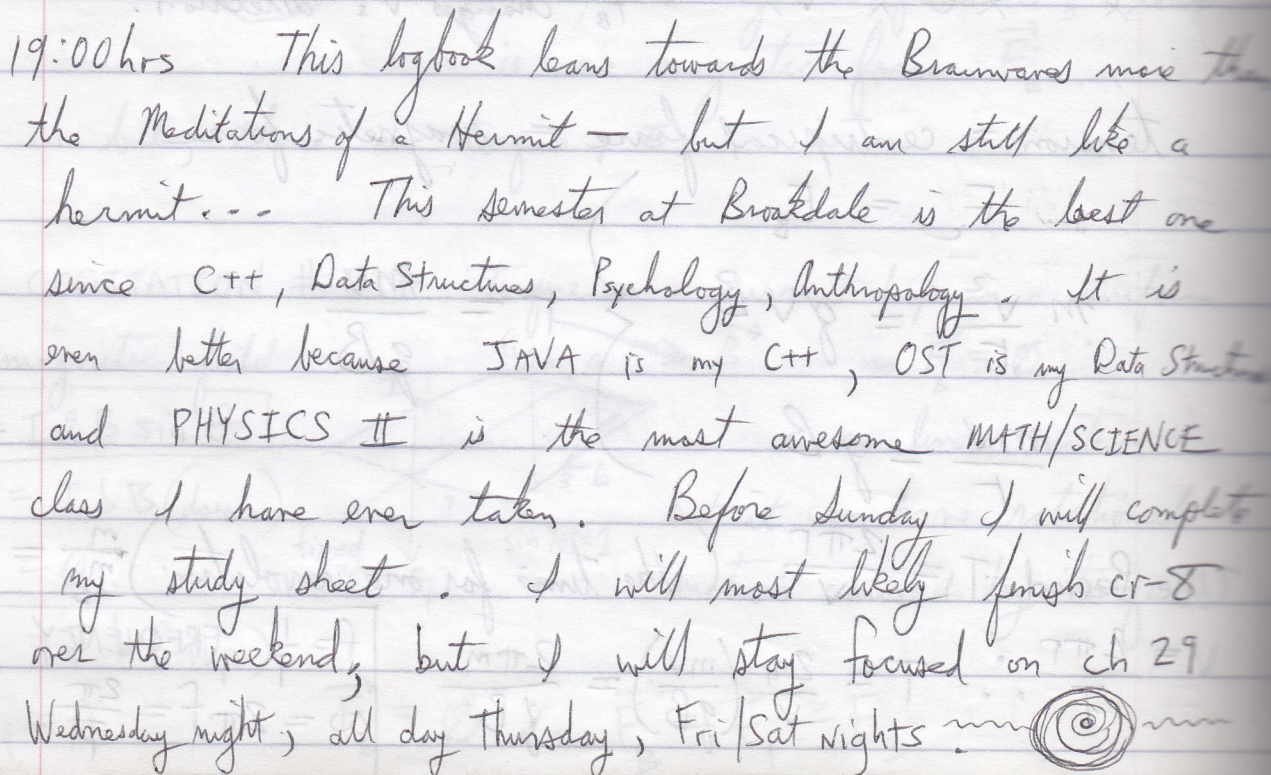 19:00hrs This logbook leans towards the Brainwaves more
the Meditations of a Hermit — but I am still like a
hermit... This semester at Brookdale is the best one
since C++, Data Structures, Psychology, Anthropology. It is
even better because JAVA is my C++, OST is my Data
and PHYSICS II is the most awesome MATH/SCIENCE
class I have ever taken. Before Sunday I will complete
my study sheet. I will most likely finish cr-8
over the weekend, but I will stay focused on ch 29
Wednesday night, all day Thursday, Fri/Sat Nights.